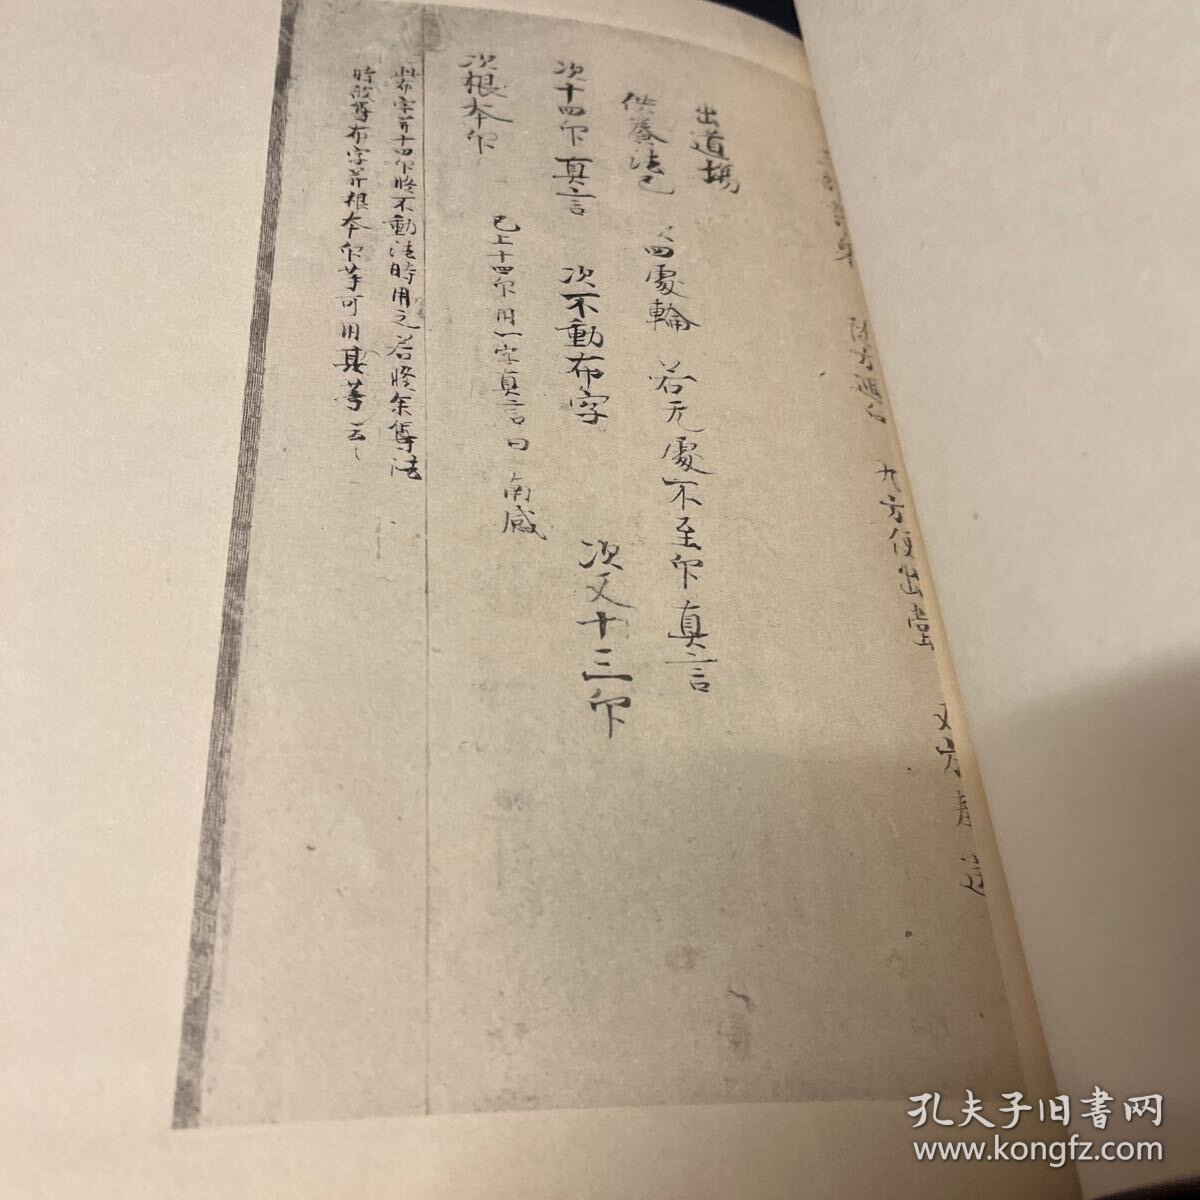 九方便 出堂
出道場
供養法已 四處輪 若无處不至印真言
次十四印真言 次不動布字 次又十三印
次根本印 已上十四印用一字真言曰 南慼
此布字并十四印修不動法時用之若修余尊法
時啟尊布字并根本印等可用其䓁云〻
孔夫子旧書网
www.kongfz.com